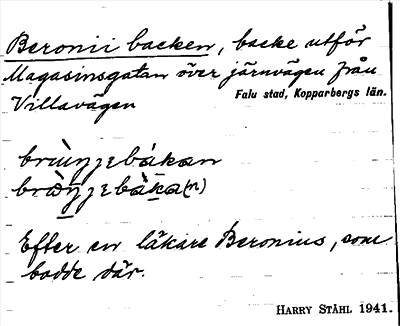 Beronii backen, backe utför
Magasinsgatan över järnvägen från
Villavägen
Falu stad, Kopparbergs län.
Efter en läkare Beronius, som
bodde där.
HARRY STÅHL 1941.